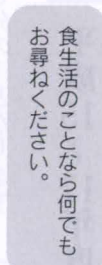 食生活のことなら何でも
お尋ねください。